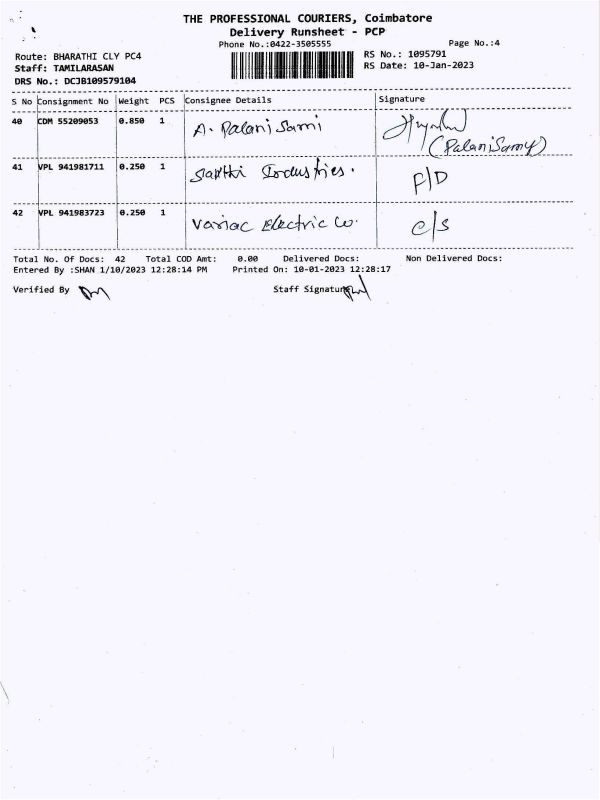 THE PROFESSIONAL COURIERS, Coimbatore
Delivery Runsheet - PCP
Phone No.:0422-3505555 Page No.:4
Route: BHARATHI CLY PC4 RS No.: 1095791
Staff: TAMILARASAN RS Date: 10-Jan-2023
DRS No.: DCJB109579104
S No Consignment No Weight PCS Consignee Details Signature
40 CDM 55209053 0.850 1 A. Palani Sami
(PalaniSamy)
41 VPL 941981711 0.250 1 Sakthi Industries. F/D
42 VPL 941983723 0.250 1 Variac Electric Co. c/s
Total No. Of Docs: 42 Total COD Amt: 0.00 Delivered Docs: Non Delivered Docs:
Entered By :SHAN 1/10/2023 12:28:14 PM Printed On: 10-01-2023 12:28:17
Verified By Staff Signature